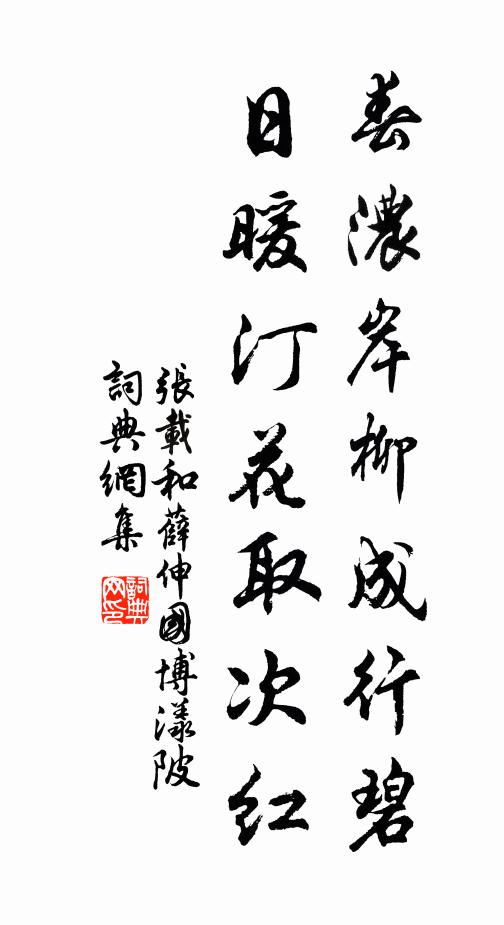 春濃岸柳成行碧
日暖汀花取次紅
張載和薛伸國博漾陂
詞典網集
詞典
网印